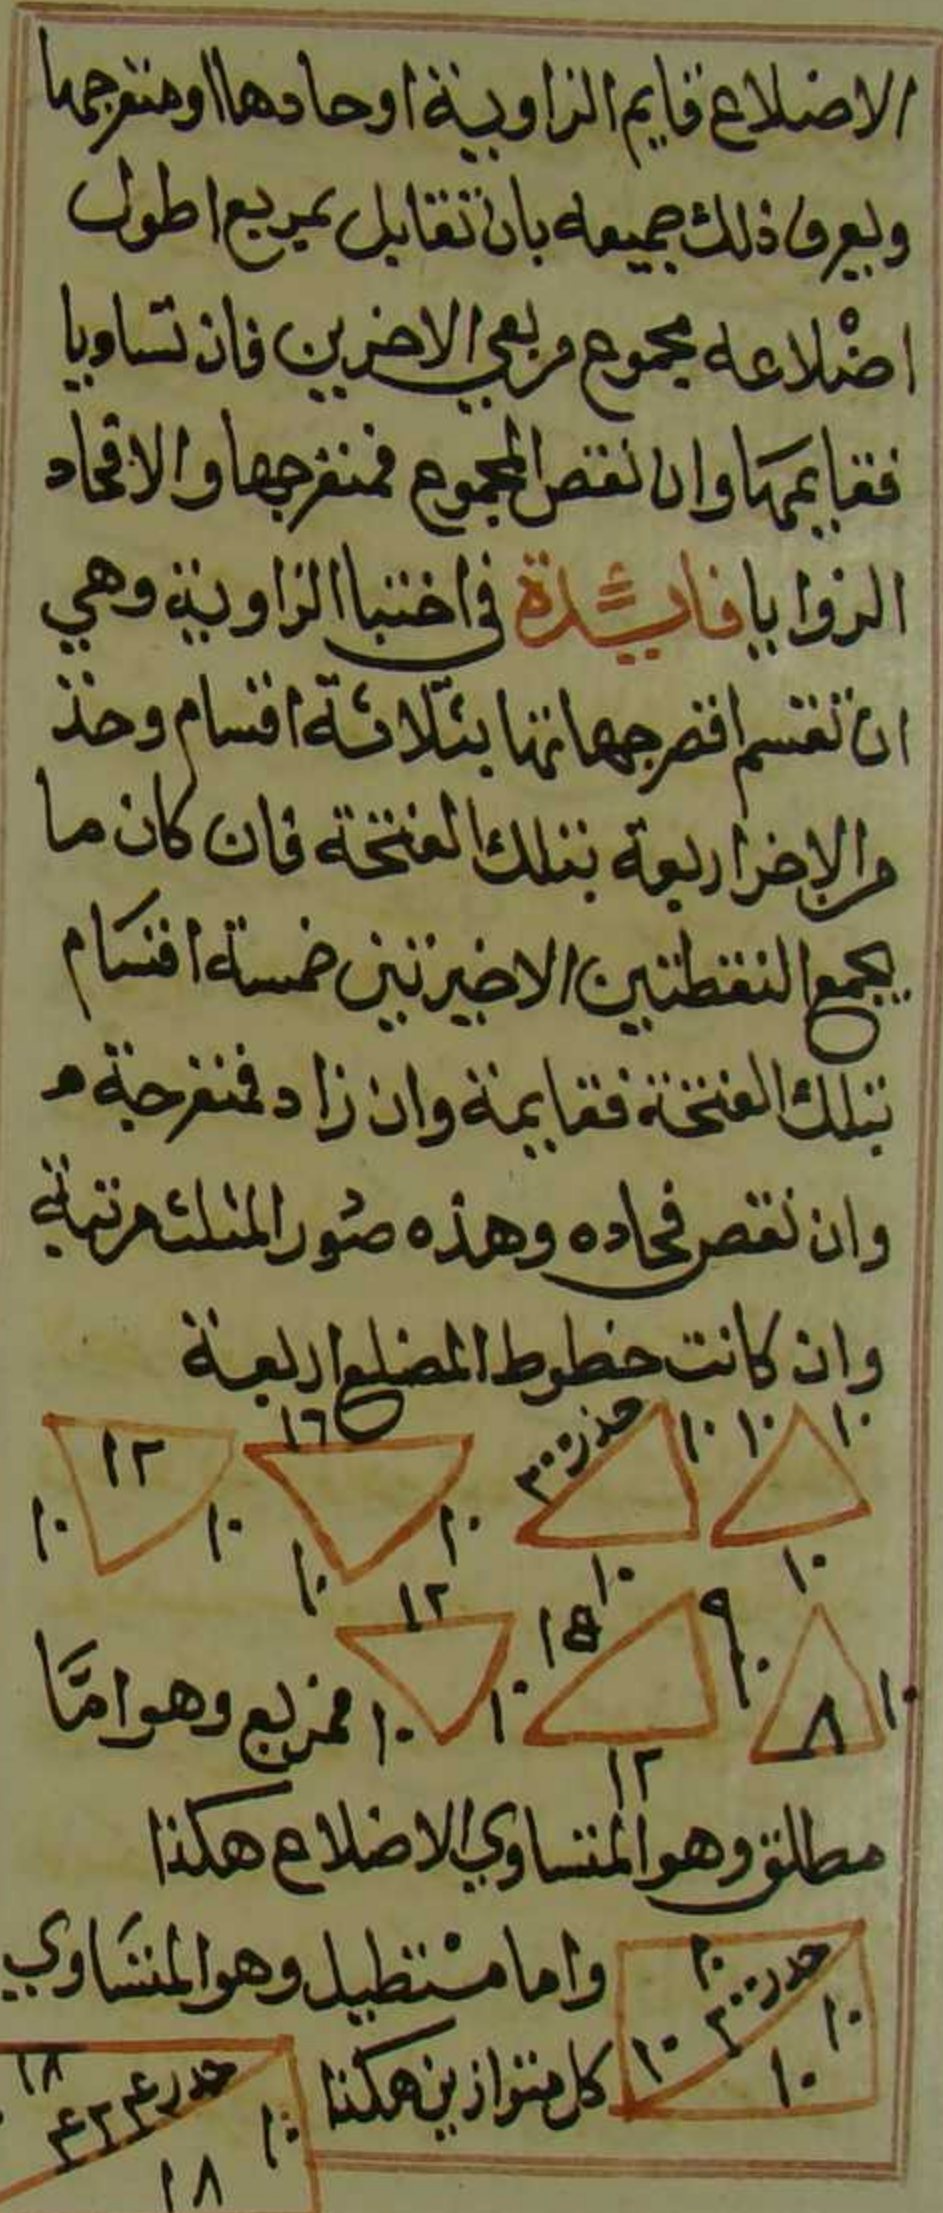 الاضلاع قايم الزاوية او حادها او منفرجها
ويعرف ذلك جميعه بان تقابل بمربع اطول
اضْلاعه مجموع مربعي الاخرين فان تساويا
فقايمها وان نقص المجموع فمنفرجها والا فحاد
الزوايا فايدة في اختبا الزاوية وهي
ان تقسم اقصر جهاتها بثلاثة اقسام وخذ
من الاخر اربعة بتلك الفتحة فان كان ما
يجمع النقطتين الاخيرتين خمسة اقسام
بتلك الفتحة فقايمة وان زاد فمنفرجة
وان نقص فحاده وهذه صور المثلث مرتبة
وان كانت خطوط المضلع اربعة
١٠ ١٠ ١٠
١٠ جذر ١٠
١٦ ١٠ ١٠
١٢ ١٠ ١٠
١٠ ١٠ ٨
٩ ١٥ ١٢
١٢ ١٠ ١٠
فمربع وهو امَّا
مطلق وهو المتساوي الاضلاع هكذا
جذر ٢٠٠ ١٠ ١٠ ١٠ ١٠
واما مسْتطيل وهو المتسَاوي
كل متوازين هكذا
جذر ٤٢٤ ١٨ ١٠ ١٨